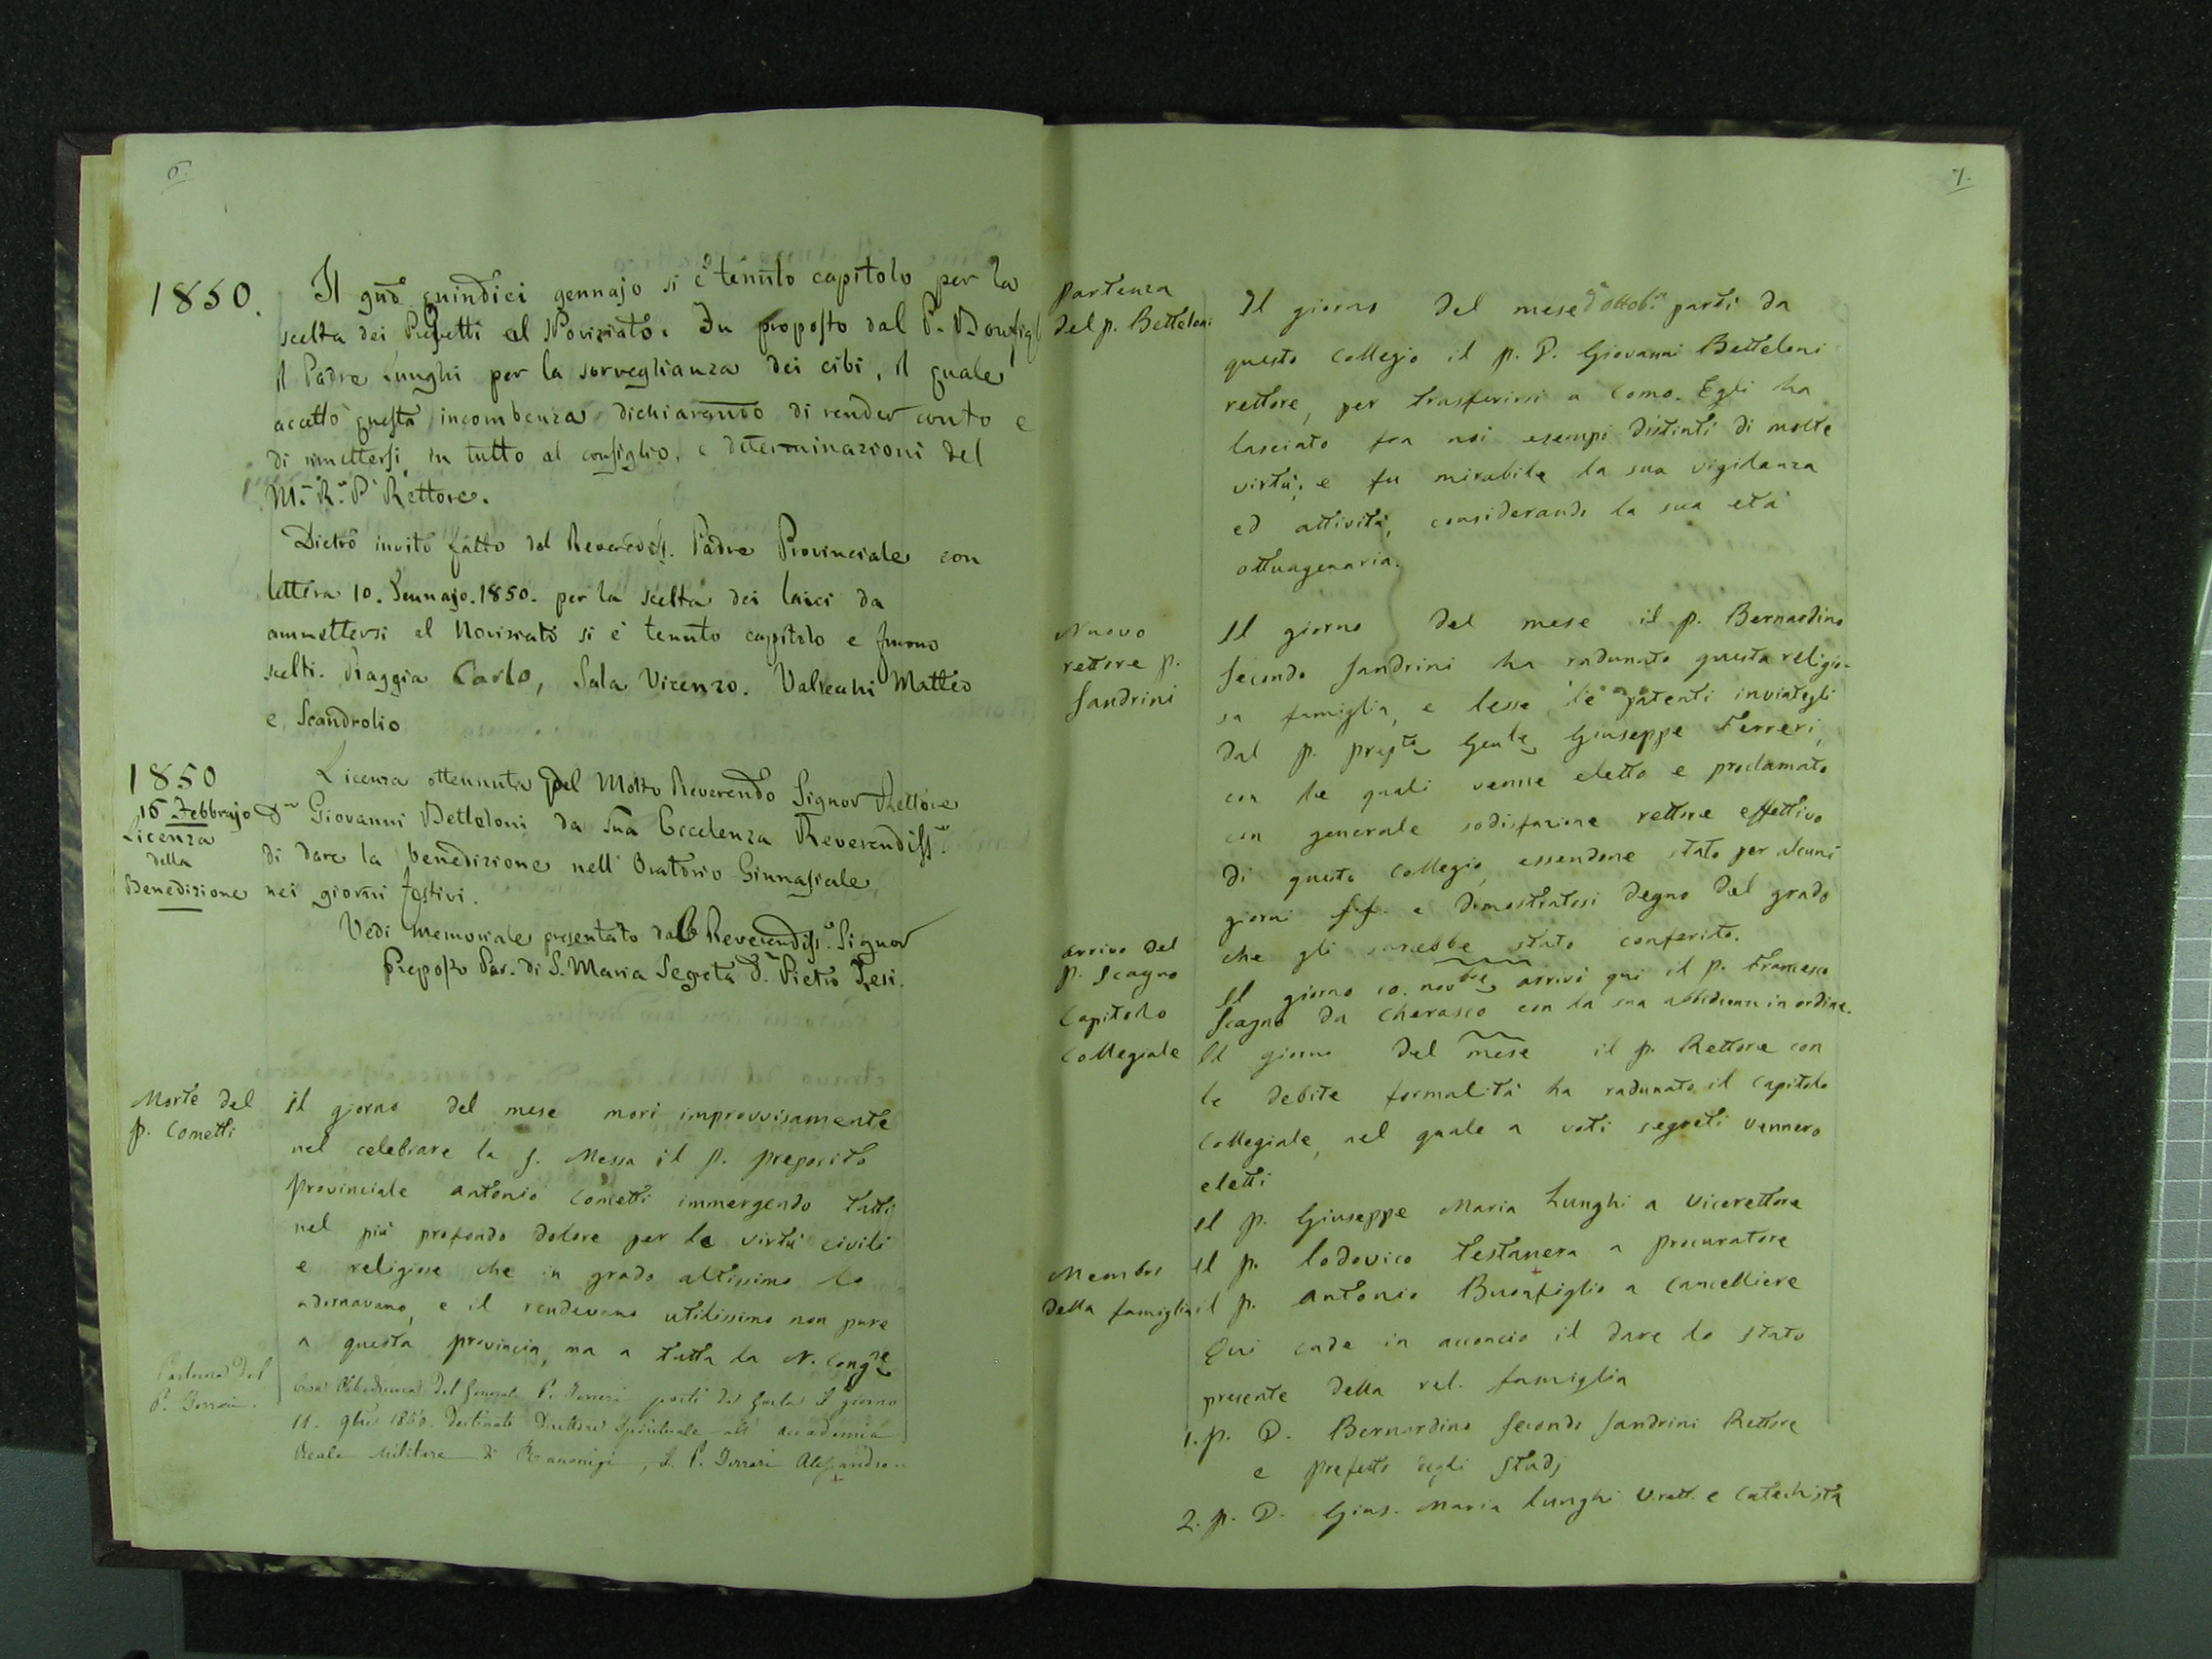 6.
1850.
Il gno quindici gennajo si è tenuto capitolo per la
scelta dei Prefetti al Noviziato. Fu proposto dal P. Bonfigl
il Padre Lunghi per la sorveglianza dei cibi, il quale
accettò questa incombenza dichiarando di render conto e
di rimettersi in tutto al consiglio, e determinazioni del
M. R. P. Rettore.
Dietro invito fatto dal Reverendiss. Padre Provinciale con
lettera 10. Gennajo. 1850. per la scelta dei laici da
ammettersi al Noviziato si è tenuto cappitolo e furono
scelti. Raggia Carlo, Sala Vicenzo. Valsecchi Matteo
e Scandrolio
1850
16 Febbrajo
Licenza
della
Benedizione
Licenza ottennuta dal Molto Reverendo Signor Rettore
Dn Giovanni Betteloni da Sua Eccelenza Reverendiss.
di dare la benedizione nell' Oratorio Ginnasiale
nei giorni festivi.
Vedi memoriale presentato dal Reverendiss. Signor
Preposto Par. di S. Maria Segreta D. Pietro Resi.
Morte del
p. Cometti
Il giorno del mese morì improvvisamente
nel celebrare la S. Messa il p. preposito
provinciale Antonio Cometti immergendo tutti
nel più profondo dolore per le virtù civili
e religiose che in grado altissimo lo
adornavano, e il rendevano utilissimo non pure
a questa provincia, ma a tutta la N. Congre
Partenza del
P. Ferreri.
Obbedienza del Generale P. Ferreri partì da Gorla il giorno
11. 9bre 1850. destinato Direttore Spirituale all' Accademia
Reale Militare di Racconigi, il P. Ferreri Alessandro
7.
Partenza
del p. Betteloni
Il giorno del mese d'ottobr. partì da
questo Collegio il p. D. Giovanni Betteloni
rettore, per trasferirsi a Como. Egli ha
lasciato fra noi esempi distinti di molte
virtù; e fu mirabile la sua vigilanza
ed attività, considerando la sua età
ottuagenaria.
Nuovo
rettore p.
Sandrini
Il giorno del mese il p. Bernardino
Secondo Sandrini ha radunato questa religio-
sa famiglia, e lesse le patenti inviategli
dal p. prepto Genle Giuseppe Ferreri,
con le quali venne eletto e proclamato
con generale sodisfazione rettore effettivo
di questo Collegio, essendone stato per alcuni
giorni f.f. e dimostratosi degno del grado
che gli sarebbe stato conferito.
Arrivo del
p. Scagno
Il giorno 10. novbre arrivò qui il p. Francesco
Scagno da Cherasco con la sua obbedienza in ordine.
Capitolo
Collegiale
Il giorno del mese il p. Rettore con
le debite formalità ha radunato il Capitolo
Collegiale, nel quale a voti segreti vennero
eletti
Il p. Giuseppe Maria Lunghi a Vicerettore
Il p. Lodovico Testanera a procuratore
il p. Antonio Buonfiglio a Cancelliere
Membri
della famiglia
Qui cade in acconcio il dare lo stato
presente della rel. famiglia
1. p. D. Bernardino Secondo Sandrini Rettore
e prefetto degli Studj
2. p. D. Gius. Maria Lunghi V.rett. e Catechista